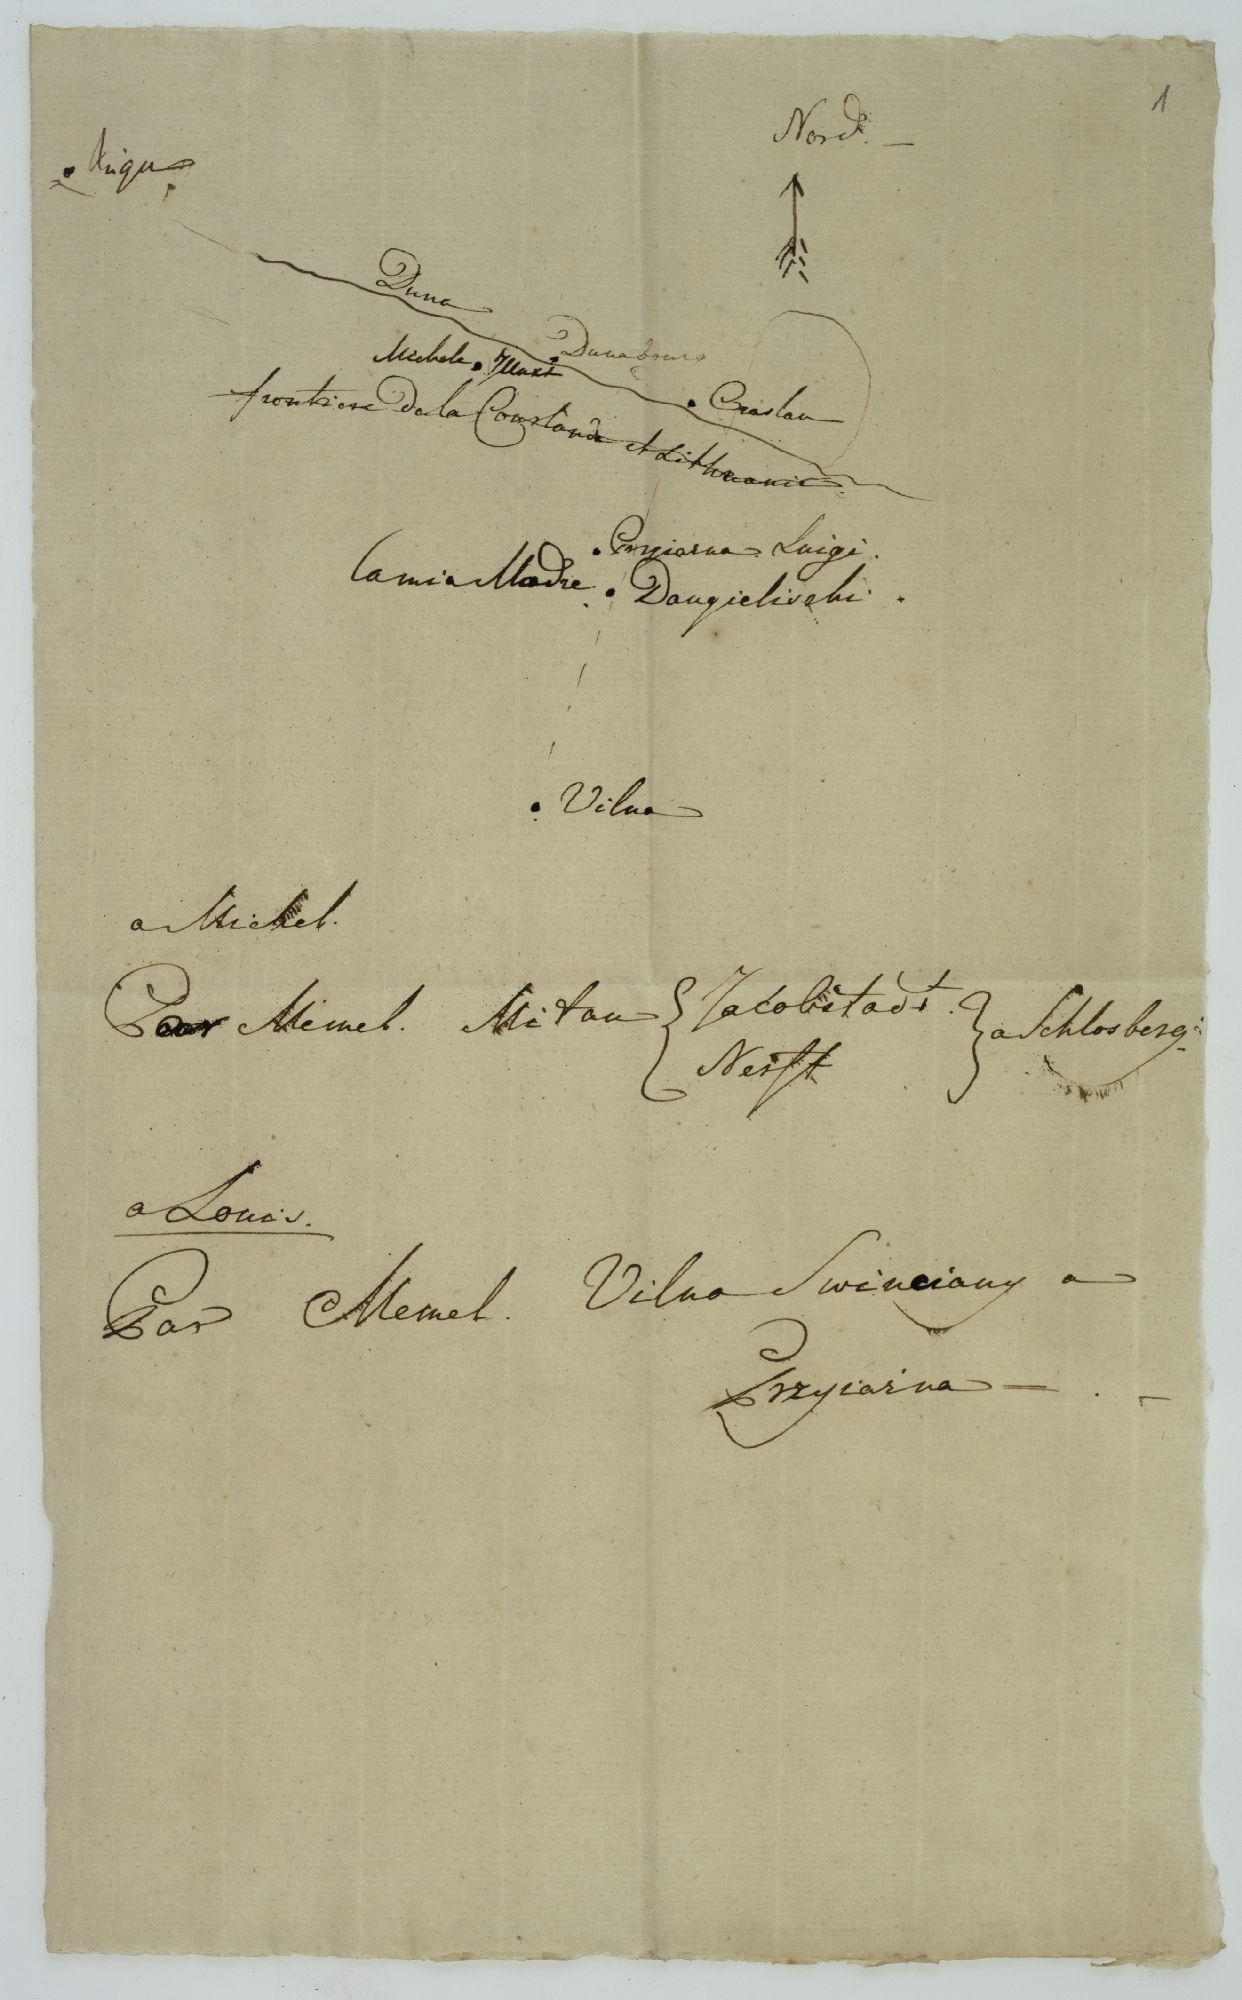 1
Nord.
Riga
Duna
Dunabourg
Michele Illuxt
Craslau
frontiere de la Courlande et Lithuanie
Przyiazna Luigi.
la mia Madre Daugieliszki.
Vilna
a Michel.
Par Memel. Mitau { Jacobstadt. } a Schlosberg.
Nerft
a Louis.
Par Memel. Vilna Swinciany a
Przyiazna